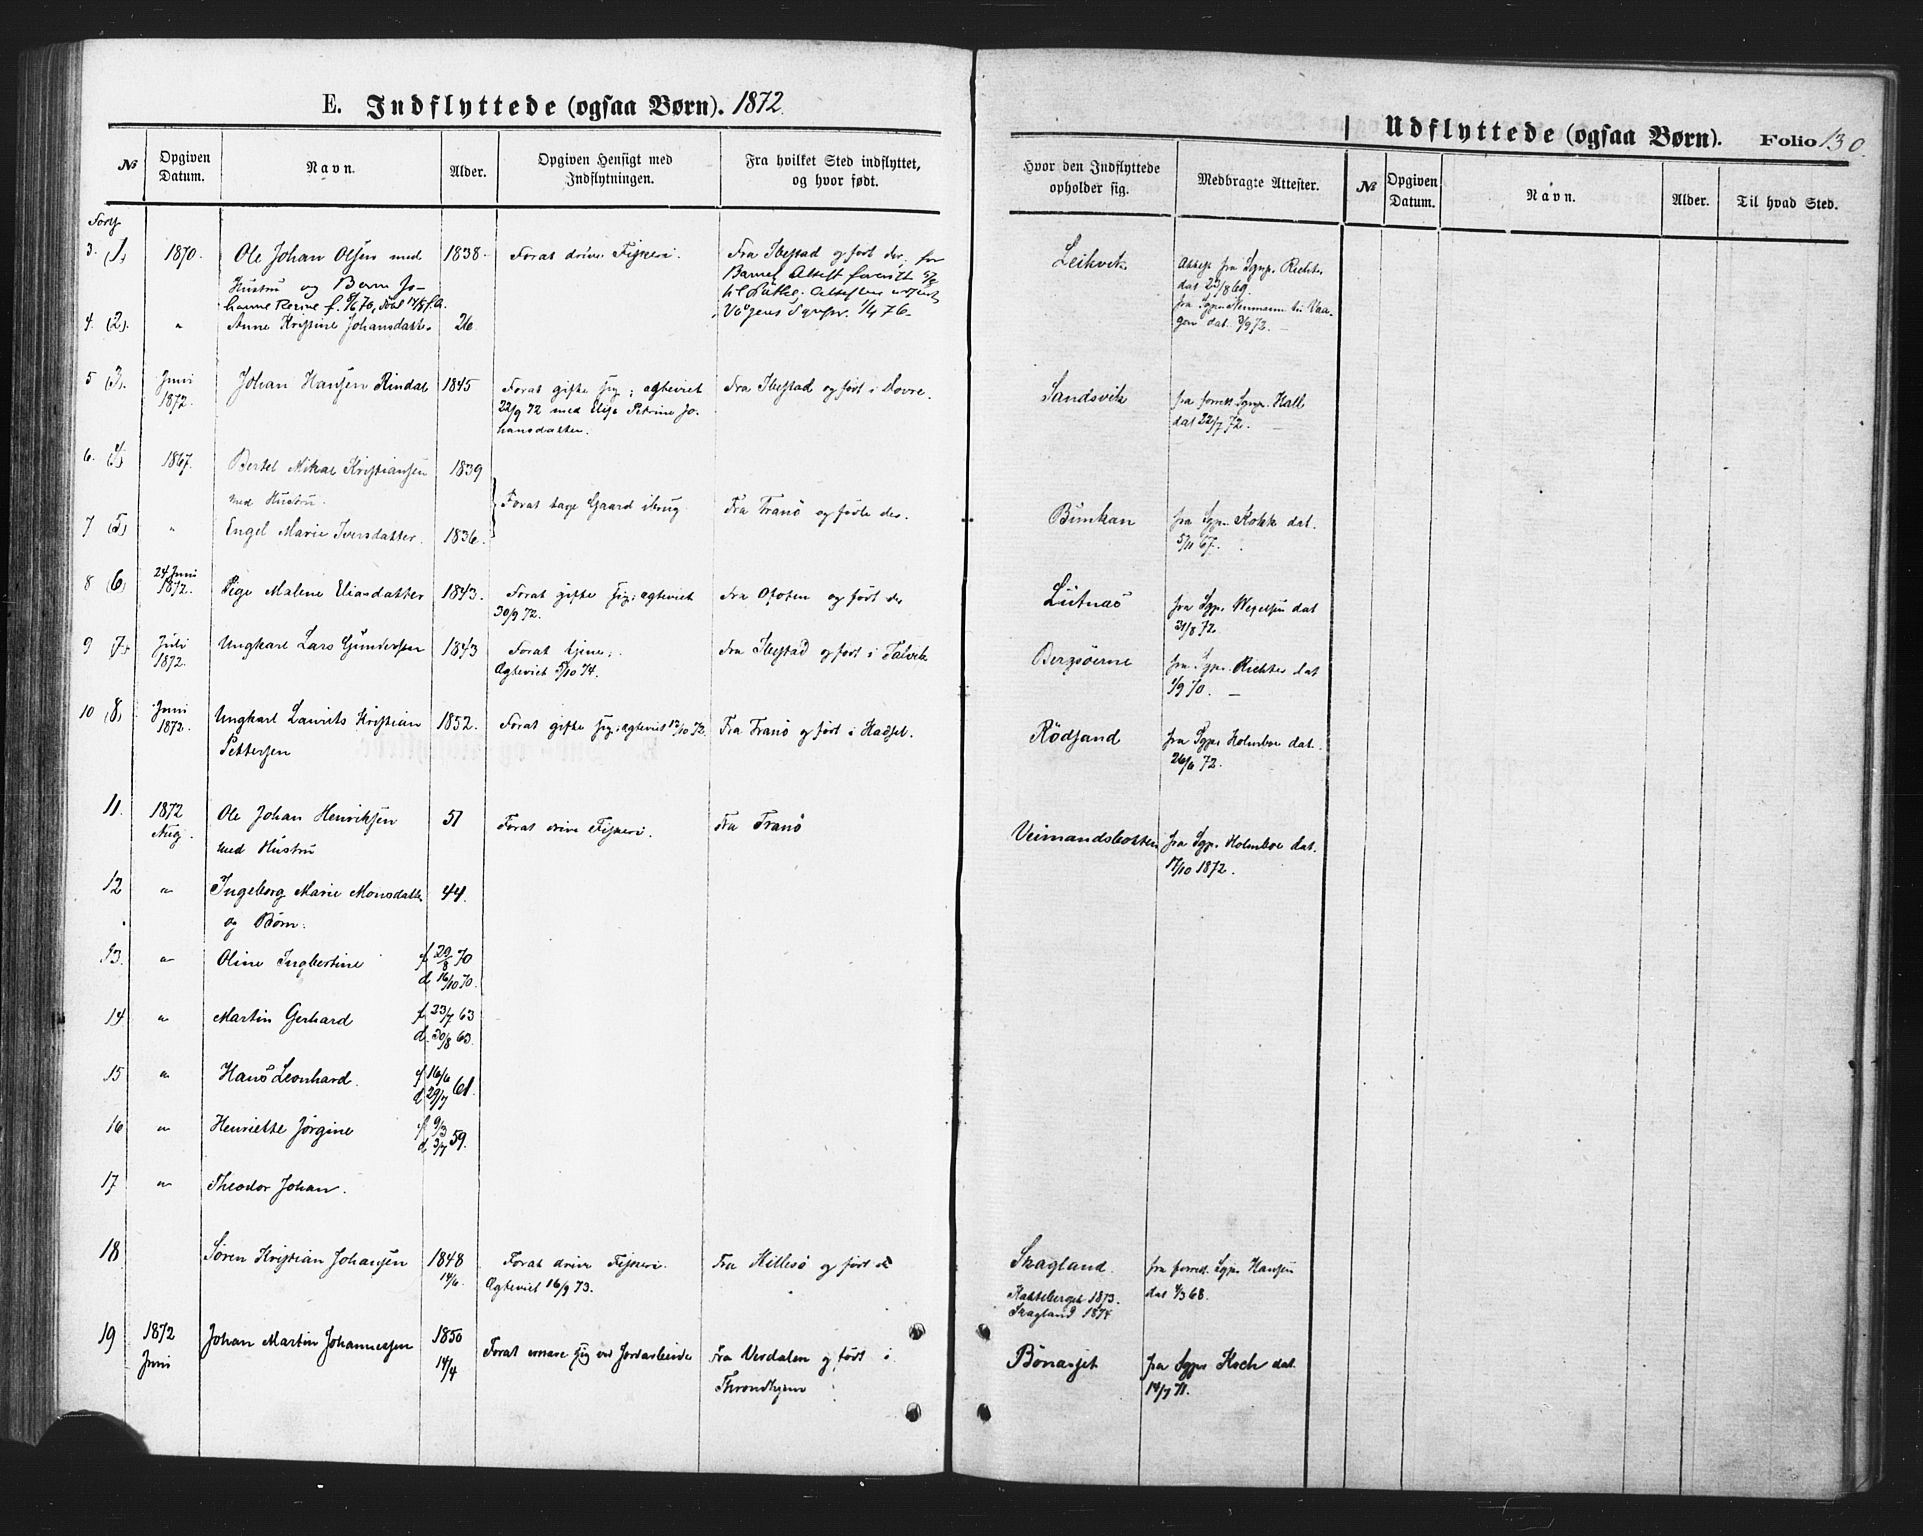 E. Indflyttede (ogsaa Børn). 1872.
№ Opgiven Datum. Navn. Alder. Opgiven Hensigt med Indflytningen. Fra hvilket Sted indflyttet, og hvor født.
Udflyttede (ogsaa Børn). Folio 130.
Hvor den Indflyttede opholder sig. Medbragte Attester. № Opgiven Datum. Navn. Alder. Til hvad Sted.
3. (1) 1870. Ole Johan Olsen med 1838. Forat drive Fiskeri. Fra Ibestad og født der; for Leikvik Attest fra Sgpr. Richter
Hustru og Barn Jo- Barnet
dat
4. (2). " Anne Kristine Johansdatter 26 1/4 76.
5 (3). Juni 1872. Johan Hansen Rindal 1845 Forat gifte sig; ægteviet Fra Ibestad og født i Dovre. Sandsvik fra Sgpr. Hall
22/9 72 med Petrine Jo- dat 22/7 72.
hansdatter.
6. (4) 1867. Bertel Mikal Kristiansen 1839
med Hustru. Forat tage Gaard i brug. Fra Tranö og födte der. fra Sgpr. dat.
7 (5) " Engel Marie Iversdatter. 1836. 67.
8 (6) 24 Juni 1872. Pige Malene Eliasdatter 1843. Forat gifte sig; ægteviet Fra Ofoten og født der Lutnæs fra Sgpr. dat
30/9 72. 31/8 72.
9 (7) Juli 1872. Ungkarl Lars Gundersen 1843 Forat tjene. Fra Ibestad og født i Talvik Bergsøerne fra Sgpr. Richter dat
Ægteviet 5/10 74. 1/9 70.
10 (8) Juni 1872. Ungkarl Laurits Kristian 1852. Forat gifte sig; ægteviet 13/10 72. Fra Tranö og født i Hadsel. Rödsand fra Sgpr Holmboe dat.
Pettersen 26/6 72.
11. 1872 Aug. Ole Johan Henriksen 51 Forat drive Fiskeri. Fra Tranö Veimandsbotten fra Sgpr. Holmboe dat.
med Hustru 17/10 1872.
12 " Ingeborg Marie Monsdatter 44.
og Børn.
13. " Oline Ingbertine f 20/8 70
d 16/10 70.
14 " Martin Gerhard f 23/7 63
d. 30/8 63.
15 " Hans Leonhard. f 16/6
d 29/7 61.
16 " Henriette Jørgine f 9/3
d 3/7 59.
17 " Theodor Johan.
18 Søren Kristian Johansen 1848 Forat drive Fiskeri. Fra Hillesö og født Skagland. fra forred. Sgpr Hansen
14/6. Ægteviet 16/9 73. dat 1/3 68.
1873.
Skagland 1874
19 1872 Juni Johan Martin Johannessen 1850 Forat ernære sig ved Jordarbeide Fra Verdalen og født i Bönæsset fra Sgpr Koch dat.
14/4 Throndhjem 14/7 71.